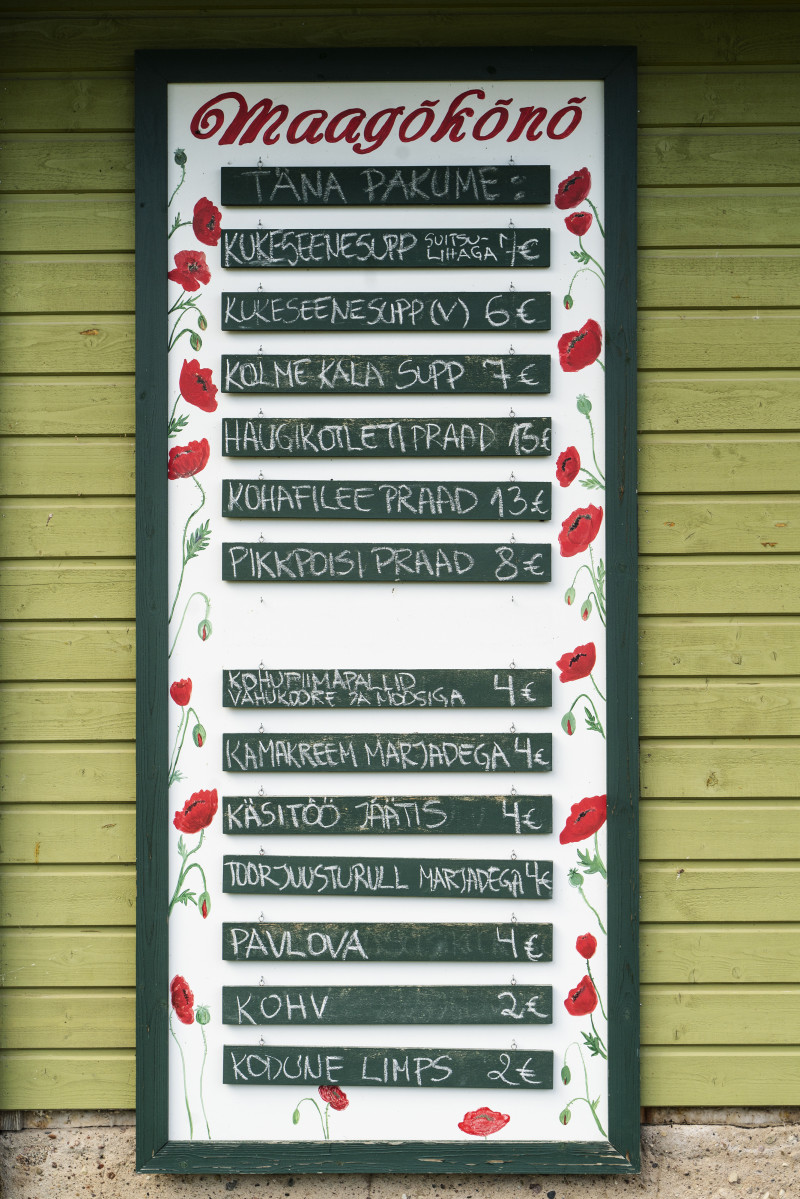 Maagõkõnõ
TÄNA PAKUME:
KUKESEENESUPP SUITSU-
LIHAGA 7€
KUKESEENESUPP(V) 6€
KOLME KALA SUPP 7€
HAUGIKOTLETI PRAAD 13€
KOHAFILEE PRAAD 13€
PIKKPOISI PRAAD 8€
KOHUPIIMAPALLID
VAHUKOORE JA MOOSIGA 4€
KAMAKREEM MARJADEGA 4€
KÄSITÖÖ JÄÄTIS 4€
TOORJUUSTURULL MARJADEGA 4€
PAVLOVA 4€
KOHV 2€
KODUNE LIMPS 2€